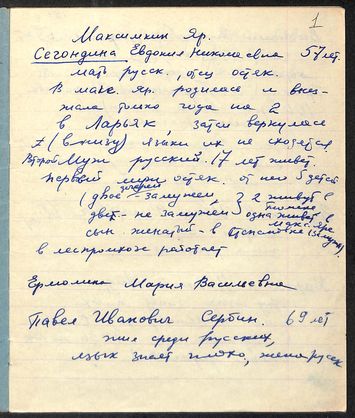 1
Максимкин Яр.
Сегондина Евдокия Николаевна 57 лет.
мать русск., отец остяк.
В Макс. Яр. родилась и выез-
жала только года на 2
в Ларьяк, затем вернулась
(в книзу) языки их не сходятся
Второй муж русский. 17 лет живет.
Первый муж остяк. от него 5 детей
(двое дочерей - замужем, 2 живут в
две - не замужем одна живет в
Макс. Яре
сын женатый - в
в леспромхозе работает
Ермолина Мария Васильевна
Павел Иванович Сербин. 69 лет
жил среди русских,
язык знает плохо, жена русск